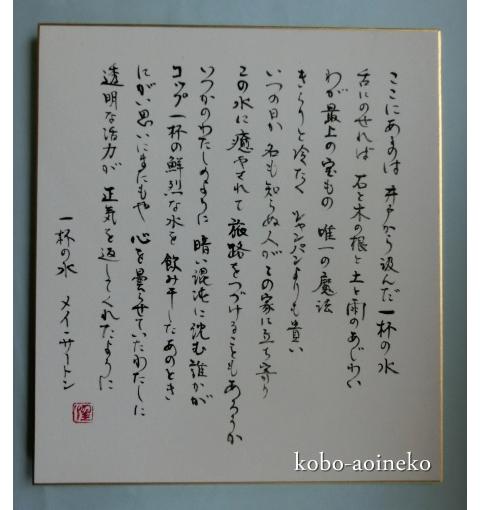 ここにあるのは 井戸から汲んだ一杯の水
舌にのせれば 石と木の根と土と雨のあじわい
わが最上の宝もの 唯一の魔法
きらりと冷たく シャンパンよりも貴い
いつの日か 名も知らぬ人がこの家に立ち寄り
この水に癒やされて 旅路をつづけることもあろうか
いつかのわたしのように 暗い混沌に沈む誰かが
コップ一杯の鮮烈な水を 飲み干したあのとき
にがい思いにまたもや 心を曇らせていたわたしに
透明な活力が 正気を返してくれたように
一杯の水 メイ・サートン
kobo-aoineko